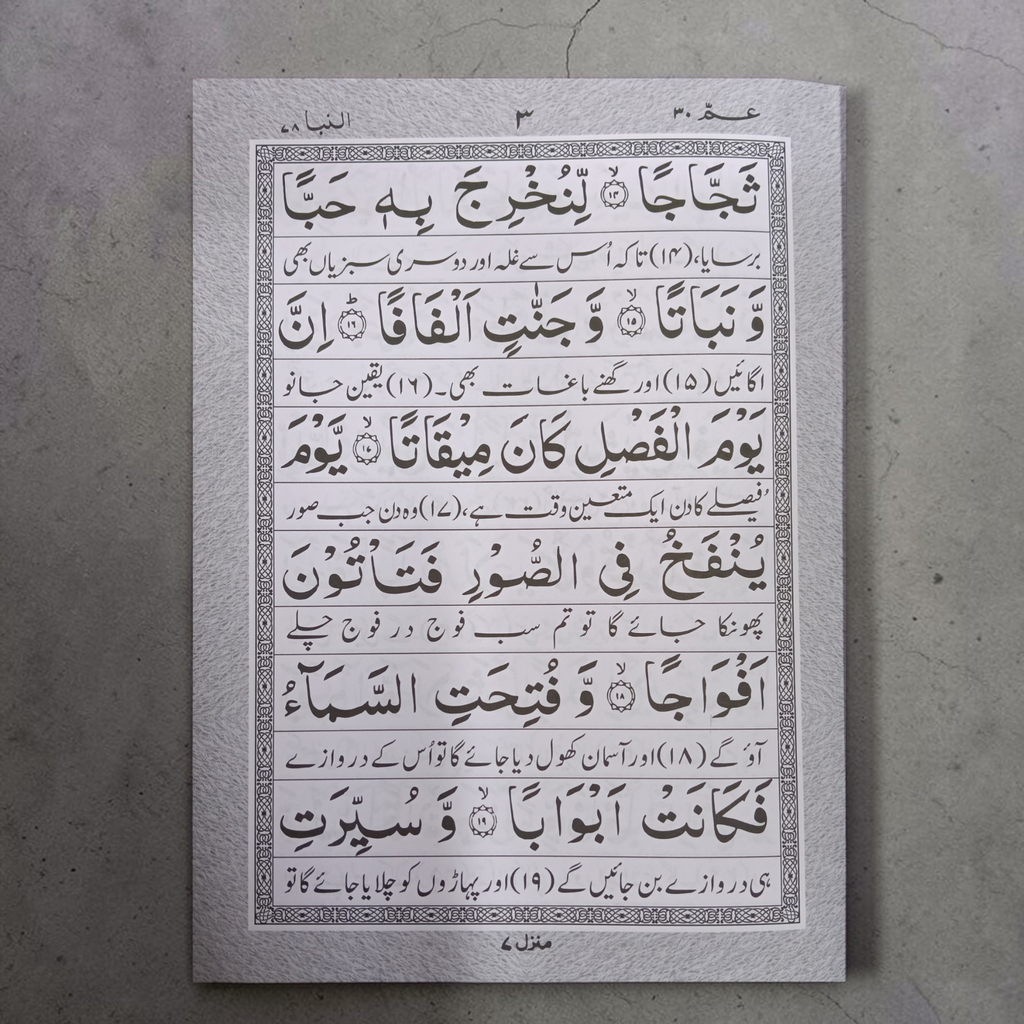 عـمّ ٣٠ ٣ النبا ٧٨
ثَجَّاجًا ۙ﴿۱۴﴾ لِّنُخْرِجَ بِهٖ حَبًّا
برسایا، (۱۴) تاکہ اُس سے غلہ اور دوسری سبزیاں بھی
وَّ نَبَاتًا ۙ﴿۱۵﴾ وَّ جَنّٰتٍ اَلْفَافًا ؕ﴿۱۶﴾ اِنَّ
اگائیں (۱۵) اور گھنے باغات بھی۔ (۱۶) یقین جانو
يَوْمَ الْفَصْلِ كَانَ مِيْقَاتًا ۙ﴿۱۷﴾ يَّوْمَ
فیصلے کا دن ایک متعین وقت ہے، (۱۷) وہ دن جب صور
يُنْفَخُ فِى الصُّوْرِ فَتَاْتُوْنَ
پھونکا جائے گا تو تم سب فوج در فوج چلے
اَفْوَاجًا ۙ﴿۱۸﴾ وَّ فُتِحَتِ السَّمَآءُ
آؤ گے (۱۸) اور آسمان کھول دیا جائے گا تو اُس کے دروازے
فَكَانَتْ اَبْوَابًا ۙ﴿۱۹﴾ وَّ سُيِّرَتِ
ہی دروازے بن جائیں گے (۱۹) اور پہاڑوں کو چلایا جائے گا تو
منزل ٧